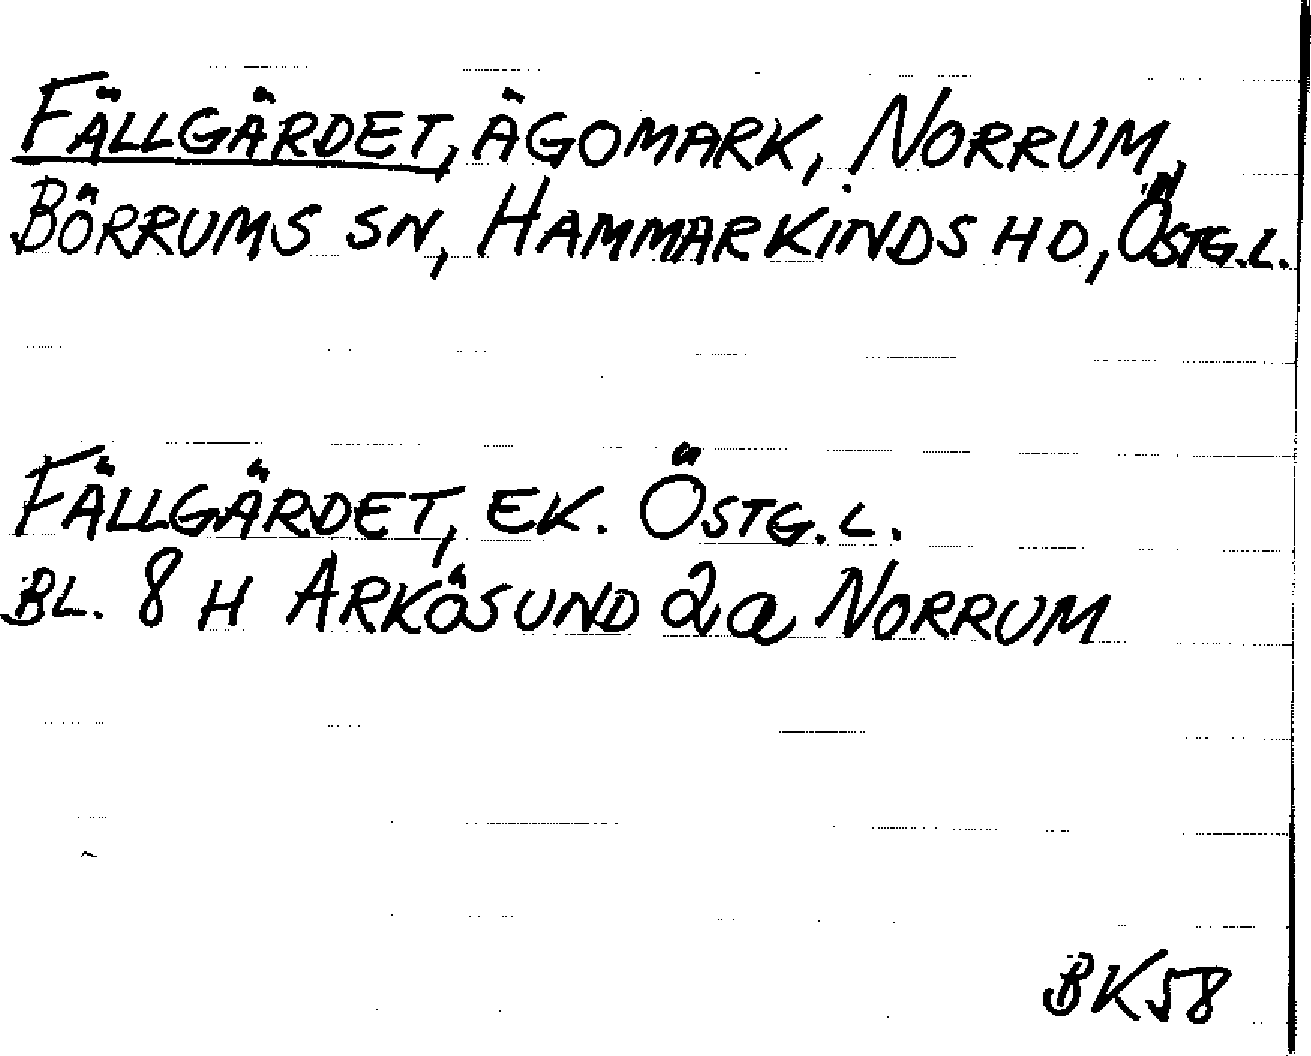 FÄLLGÄRDET, ÄGOMARK, NORRUM,
BÖRRUMS SN, HAMMARKINDS HD, ÖSTG.L.
FÄLLGÄRDET, EK. ÖSTG.L.
BL. 8 H ARKÖSUND 2a NORRUM
BK58